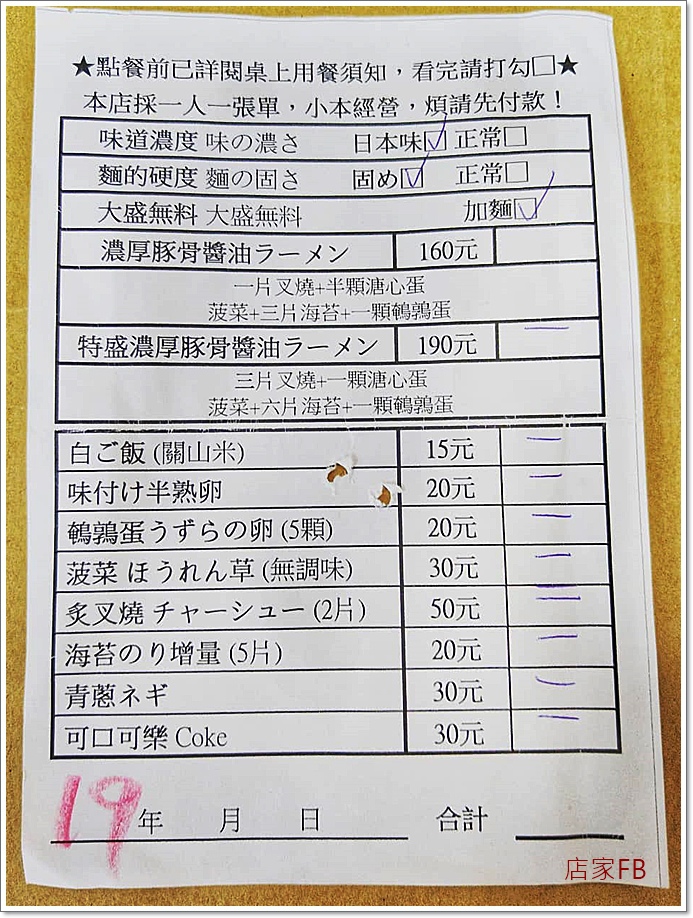 ★點餐前已詳閱桌上用餐須知，看完請打勾□★
本店採一人一張單，小本經營，煩請先付款！
味道濃度 味の濃さ 日本味☑ 正常□
麵的硬度 麵の固さ 固め☑ 正常□
大盛無料 大盛無料 加麵☑
濃厚豚骨醬油ラーメン 160元
一片叉燒+半顆溏心蛋
菠菜+三片海苔+一顆鵪鶉蛋
特盛濃厚豚骨醬油ラーメン 190元 一
三片叉燒+一顆溏心蛋
菠菜+六片海苔+一顆鵪鶉蛋
白ご飯 (關山米) 15元 一
味付け半熟卵 20元 一
鵪鶉蛋うずらの卵 (5顆) 20元 一
菠菜 ほうれん草 (無調味) 30元 一
炙叉燒 チャーシュー (2片) 50元 二
海苔のり增量 (5片) 20元 一
青蔥ネギ 30元 一
可口可樂 Coke 30元 一
19 年 月 日 合計
店家FB